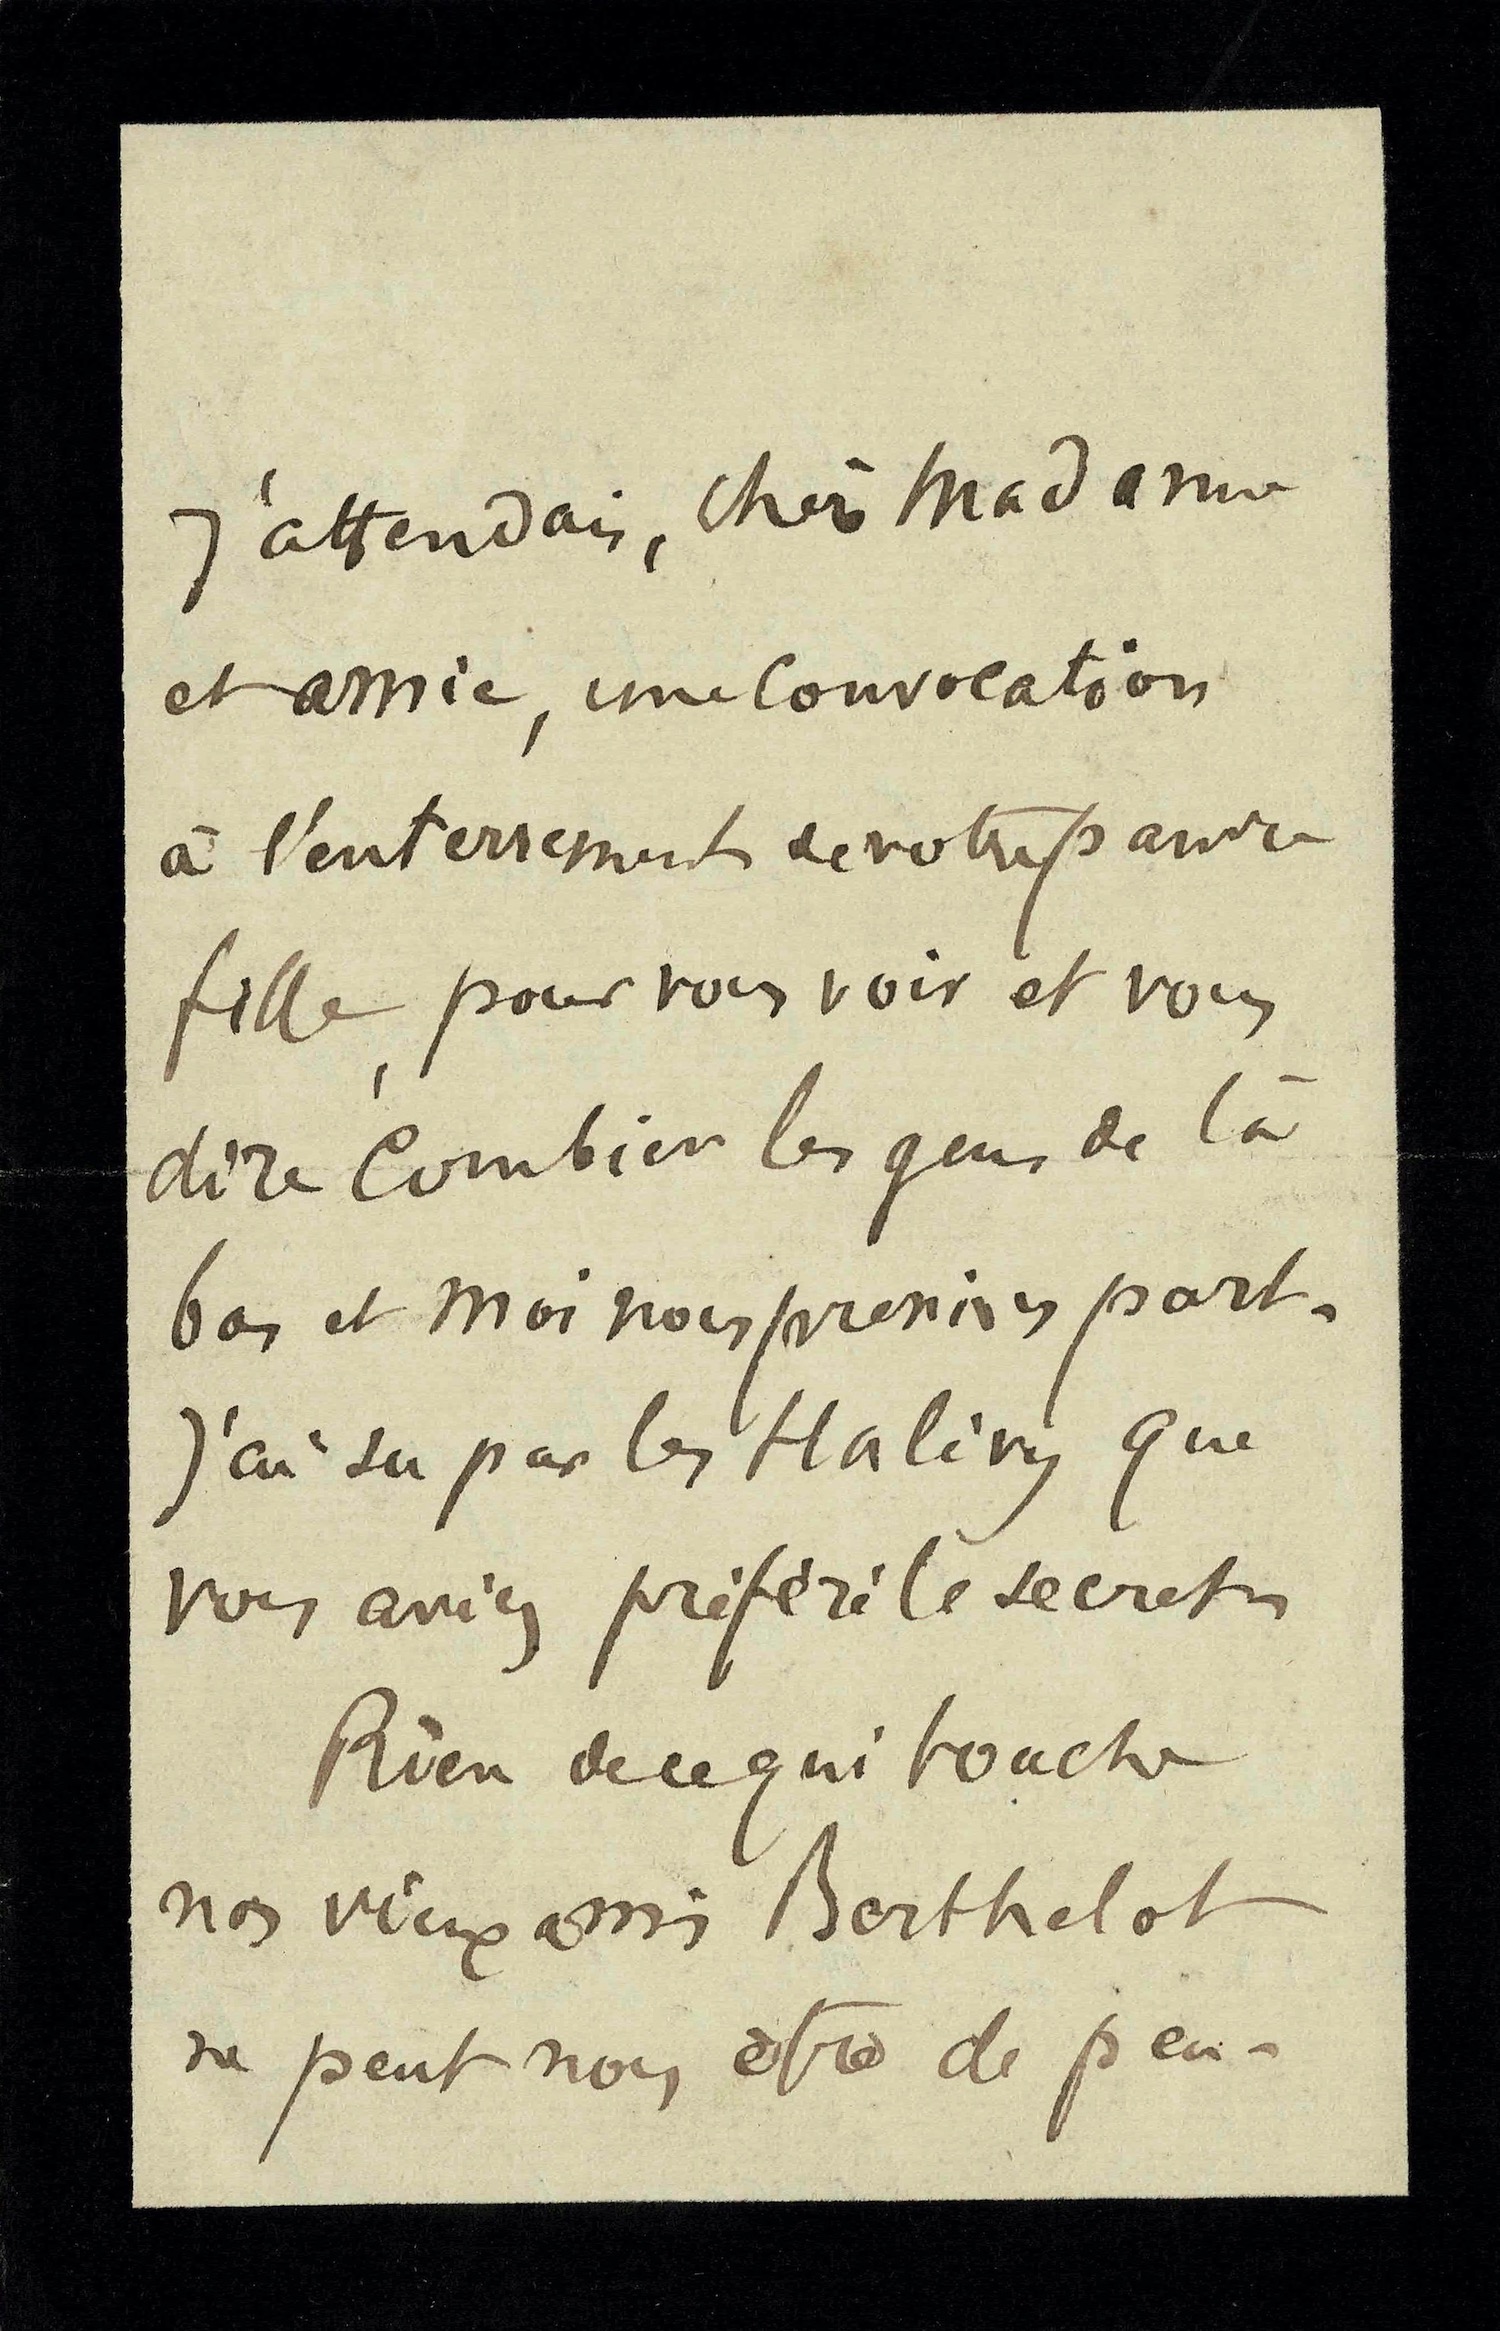 J'attendais, chère Madame
et amie, une convocation
à l'enterrement de votre pauvre
fille, pour vous voir et vous
dire combien les gens de là
bas et moi nous prenions part.
J'ai su par les Halévy que
vous aviez préféré le secret.
Rien de ce qui touche
nos vieux amis Berthelot
ne peut nous être de peu-